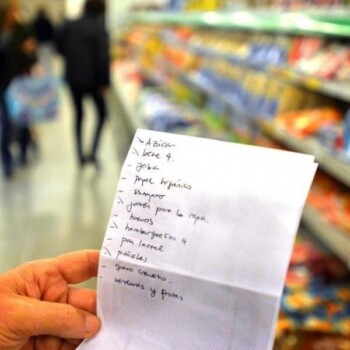 > Azúcar
> leche 4.
- yerba
- papel higiénico
- shampoo
> jabón para la ropa.
- huevos
> hamburguesas 4
- pan lactal
> pañales
- queso cremoso.
- verduras y frutas